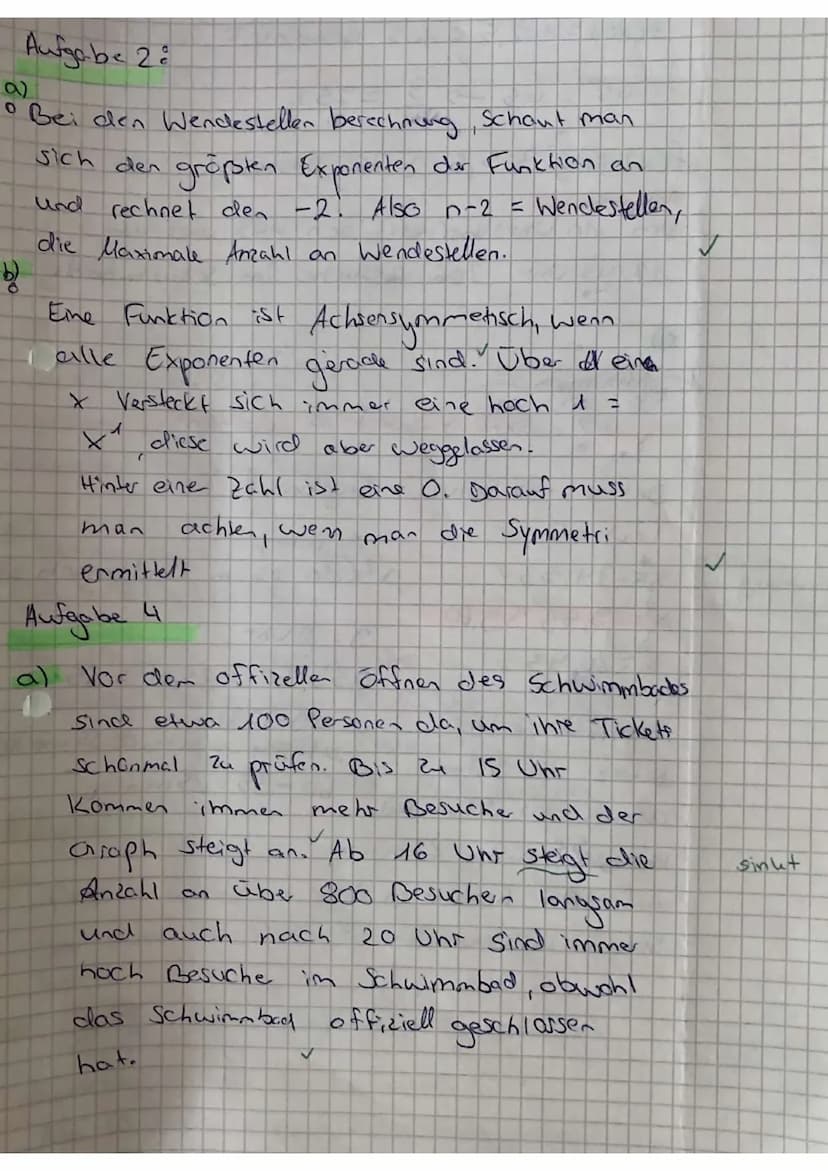 Aufgabe 2:
a)
Bei den Wendestellen berechnung, schaut man
sich den größten Exponenten der Funktion an
und rechnet den -2. Also n-2 = Wendestellen,
die Maximale Anzahl an Wendestellen.
b)
Eine Funktion ist Achsensymmetisch, wenn
alle Exponenten gerade sind. Über eine
x Versteckt sich immer eine hoch 1 =
x^1, diese wird aber weggelassen.
Hinter eine Zahl ist eine 0. Darauf muss
man achten, wen man die Symmetri
ermittelt
Aufgabe 4
a) Vor dem offizellen öffnen des Schwimmbades
sind etwa 100 Personen da, um ihre Tickets
schonmal zu prüfen. Bis zu 15 Uhr
kommen immer mehr Besuche und der
Graph steigt an. Ab 16 Uhr steigt die
sinkt
Anzahl an über 800 Besuchen langsam
und auch nach 20 Uhr sind immer
noch Besuche im Schwimmbad, obwohl
das Schwimmbad offiziell geschlossen
hat.